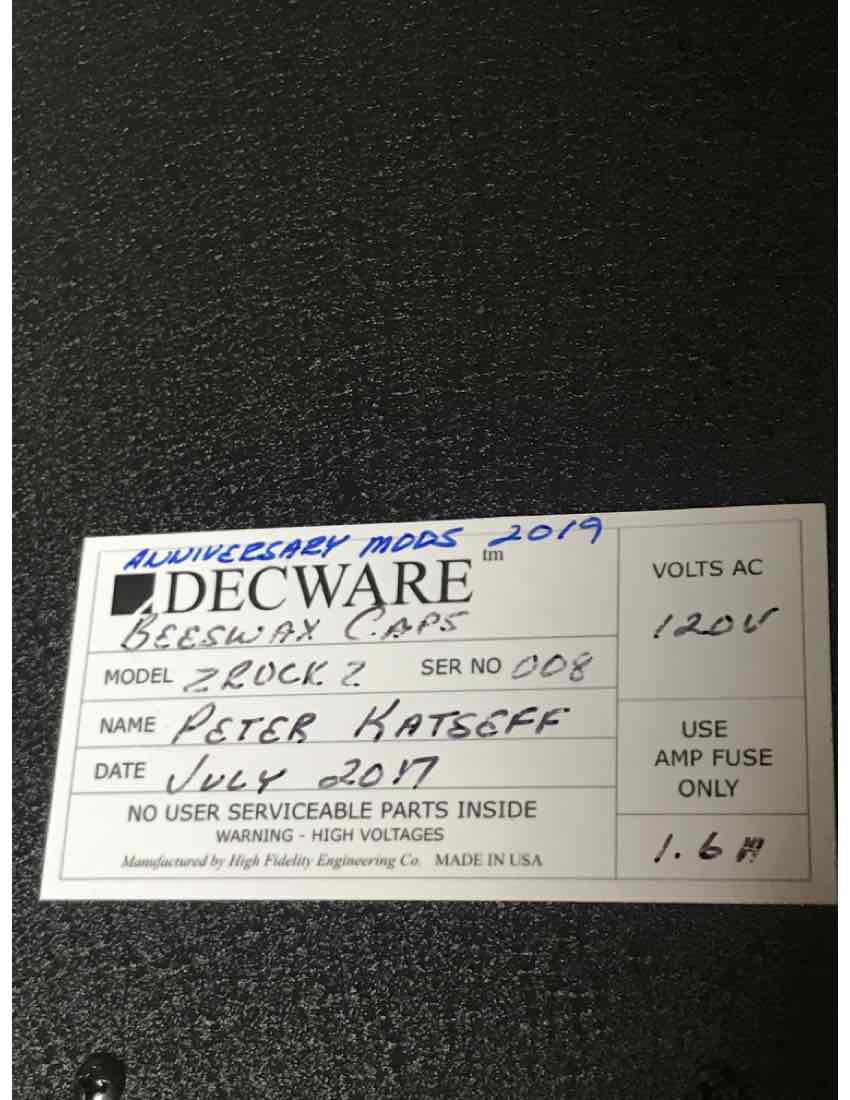 ANNIVERSARY MODS 2019
DECWARE tm
BEESWAX CAPS
MODEL ZROCK 2 SER NO 008
NAME PETER KATSEFF
DATE JULY 2017
NO USER SERVICEABLE PARTS INSIDE
WARNING - HIGH VOLTAGES
Manufactured by High Fidelity Engineering Co. MADE IN USA
VOLTS AC
120V
USE
AMP FUSE
ONLY
1.6A